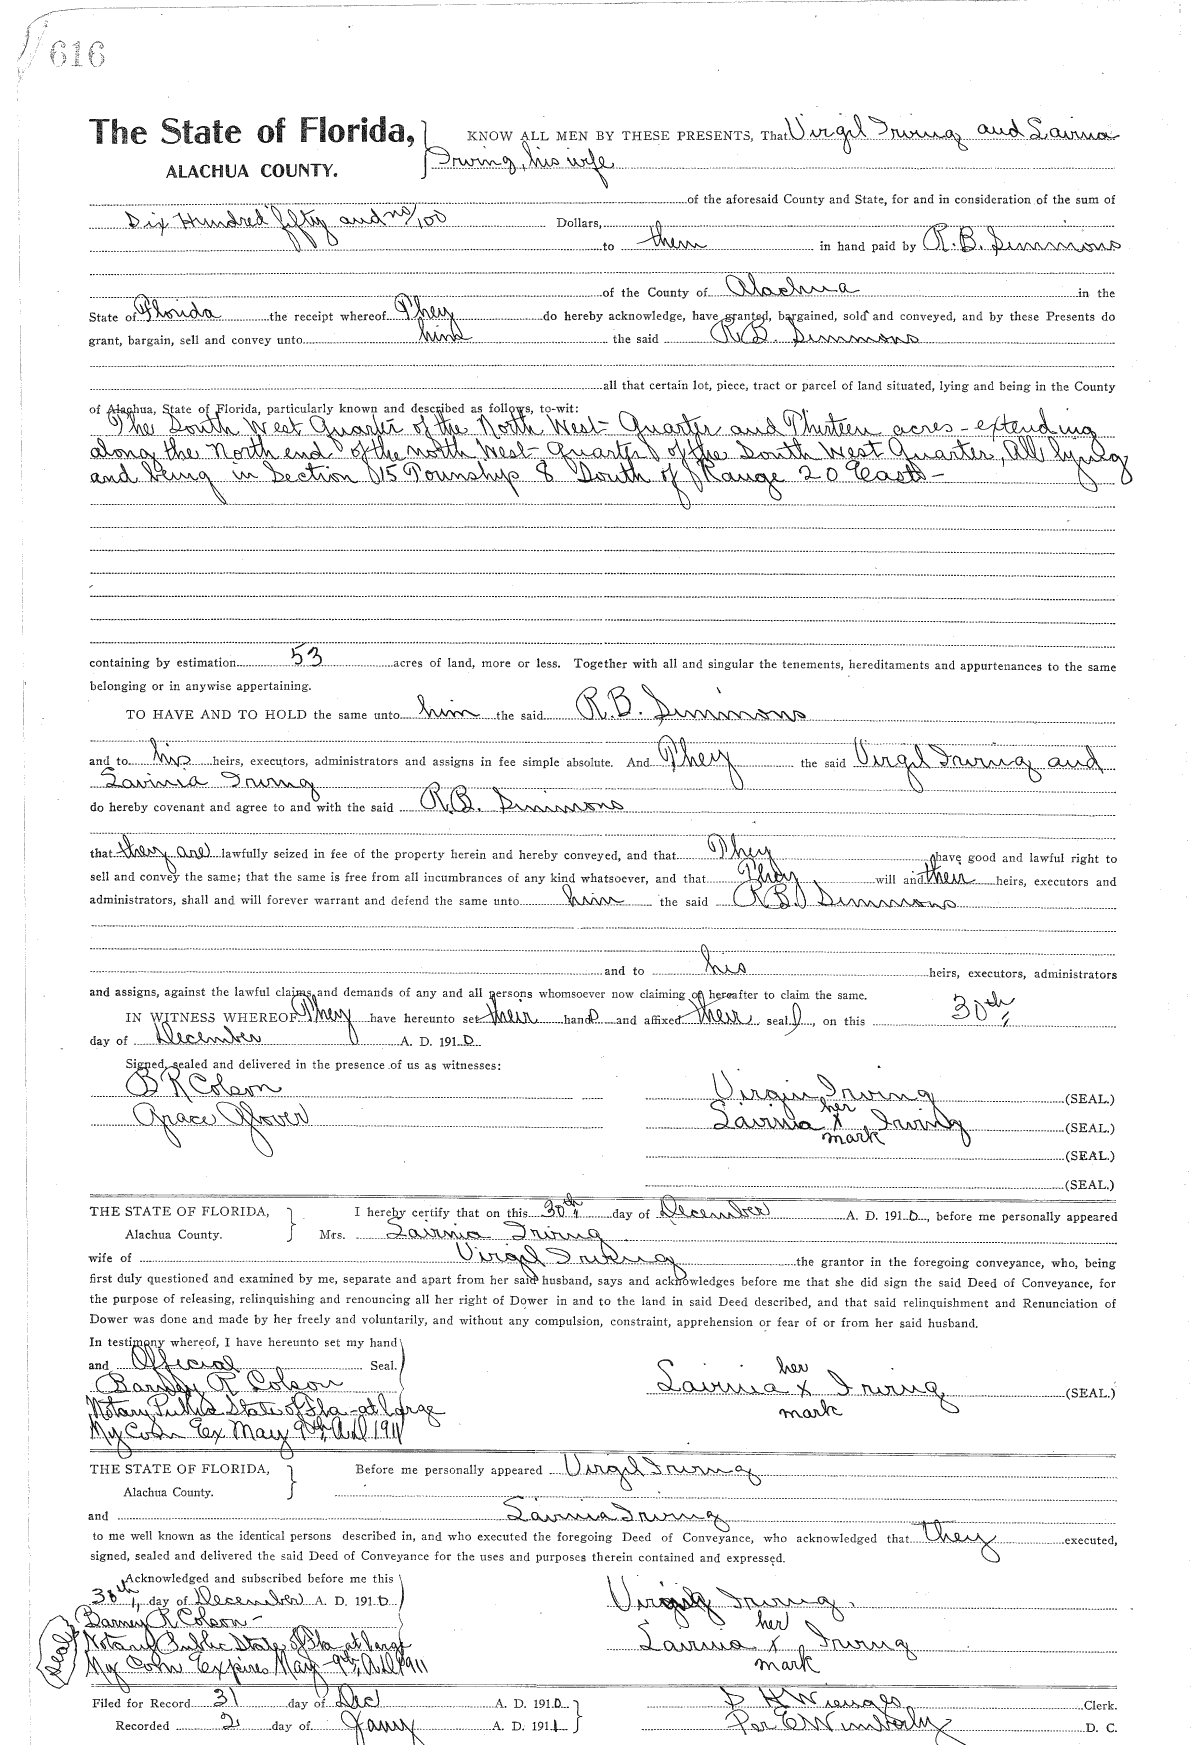 616
The State of Florida,
ALACHUA COUNTY.
KNOW ALL MEN BY THESE PRESENTS, That Virgil Irving and Lavinia
Irving, his wife
of the aforesaid County and State, for and in consideration of the sum of
Six Hundred fifty and no/100 Dollars,
to them in hand paid by R. B. Simmons
of the County of Alachua in the
State of Florida the receipt whereof They do hereby acknowledge, have granted, bargained, sold and conveyed, and by these Presents do
grant, bargain, sell and convey unto him the said R.B. Simmons
all that certain lot, piece, tract or parcel of land situated, lying and being in the County
of Alachua, State of Florida, particularly known and described as follows, to-wit:
The South West Quarter of the North West Quarter and Thirteen acres - extending
along the North end of the north West Quarter of the South West Quarter, All lying
and being in Section 15 Township 8 South of Range 20 East -
containing by estimation 53 acres of land, more or less. Together with all and singular the tenements, hereditaments and appurtenances to the same
belonging or in anywise appertaining.
TO HAVE AND TO HOLD the same unto him the said R.B. Simmons
and to his heirs, executors, administrators and assigns in fee simple absolute. And They the said Virgil Irving and
Lavinia Irving
do hereby covenant and agree to and with the said R.B. Simmons
that they are lawfully seized in fee of the property herein and hereby conveyed, and that They have good and lawful right to
sell and convey the same; that the same is free from all incumbrances of any kind whatsoever, and that They will and their heirs, executors and
administrators, shall and will forever warrant and defend the same unto him the said R.B. Simmons
and to his heirs, executors, administrators
and assigns, against the lawful claims and demands of any and all persons whomsoever now claiming or hereafter to claim the same.
IN WITNESS WHEREOF They have hereunto set their hand and affixed their seal, on this 30th
day of December A. D. 1910
Signed, sealed and delivered in the presence of us as witnesses:
B R Colson
Grace Glover
Virgin Irving (SEAL.)
her
Lavinia X Irving (SEAL.)
mark
(SEAL.)
(SEAL.)
THE STATE OF FLORIDA,
Alachua County.
I hereby certify that on this 30th day of December A. D. 1910, before me personally appeared
Mrs. Lavinia Irving
wife of Virgil Irving the grantor in the foregoing conveyance, who, being
first duly questioned and examined by me, separate and apart from her said husband, says and acknowledges before me that she did sign the said Deed of Conveyance, for
the purpose of releasing, relinquishing and renouncing all her right of Dower in and to the land in said Deed described, and that said relinquishment and Renunciation of
Dower was done and made by her freely and voluntarily, and without any compulsion, constraint, apprehension or fear of or from her said husband.
In testimony whereof, I have hereunto set my hand
and Official Seal.
Barney R Colson
Notary Public State of Fla - at large
My Com Ex May 9th, A.D. 1911
her
Lavinia X Irving (SEAL.)
mark
THE STATE OF FLORIDA,
Alachua County.
Before me personally appeared Virgil Irving
and Lavinia Irving
to me well known as the identical persons described in, and who executed the foregoing Deed of Conveyance, who acknowledged that they executed,
signed, sealed and delivered the said Deed of Conveyance for the uses and purposes therein contained and expressed.
Acknowledged and subscribed before me this
30th day of December A. D. 1910
Barney R Colson -
Notary Public State of Fla at large
My Com Expires May - 9th, A.D. 1911
Seal
Virgil Irving.
her
Lavinia X Irving
mark
Filed for Record 31 day of Dec A. D. 1910
Recorded 2 day of Jany A. D. 1911
Clerk.
Per E Wimberly D. C.